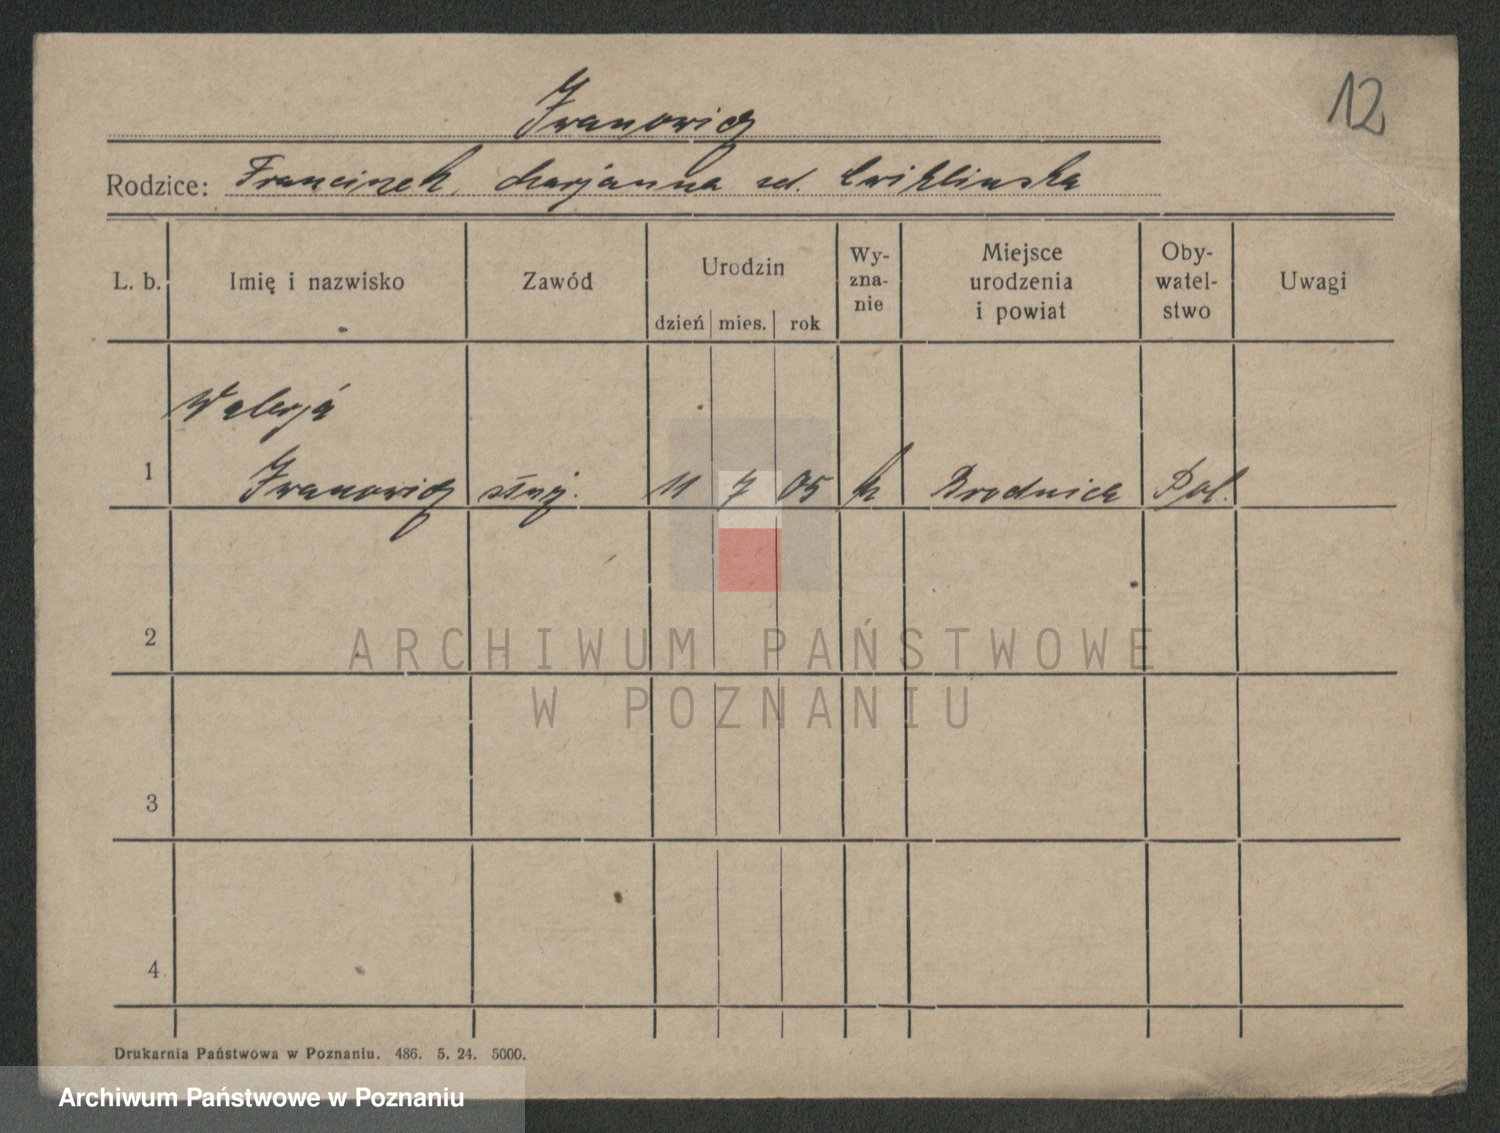 12
Iwanowicz
Rodzice: Franciszek, Marjanna zd. Cwiklinska
L. b. Imię i nazwisko Zawód Urodzin dzień mies. rok Wy-zna-nie Miejsce urodzenia i powiat Oby-watel-stwo Uwagi
Walerja
1 Iwanowicz służ. 11 7 05 k Brodnica Pol.
2
ARCHIWUM PAŃSTWOWE
W POZNANIU
3
4
Drukarnia Państwowa w Poznaniu. 486. 5. 24. 5000.
Archiwum Państwowe w Poznaniu